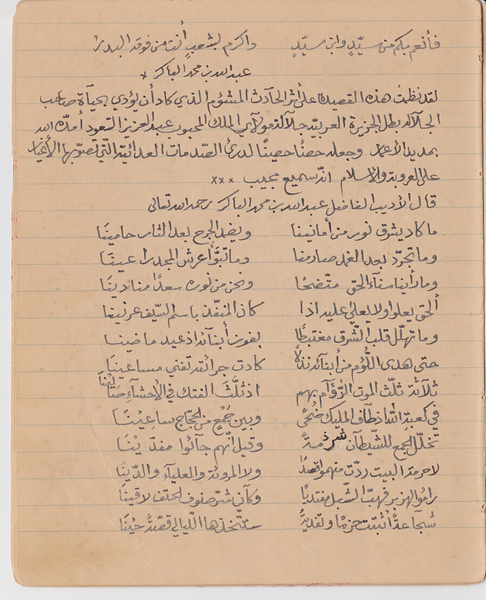 فأنعم بكم من سيّدٍ وابن سيّدٍ واكرم لشعبٍ أنت من فوقه البدرُ
عبد الله بن محمد الباكر
لقد نظمتُ هذه القصيدة على أثر الحادث المشئوم الذي كاد أن يؤدي بحيآة صاحب
الجلالة بطل الجزيرة العربيّة جلالة مولآي الملك المحبوب عبد العزيز السعود أمدّه الله
بمديد الأعمار وجعله حصنًا حصينًا لدرئ الصّدمات العدآئية الّتي تصوّبها الأغيار
على العروبة والإسلام انّه سميع مجيب xxx
قال الأديب الفاضل عبد الله بن محمد الباكر رحمه الله تعالى
ما كاد يشرق نور من أمانينا ويضمد الجرح بعد الثأر حامينَا
وما تجرّد بعد الغمد صارمنا وما تبوّأ عرش المجد راعينَا
وما رأينا سنآء الحق متّضحًا ونحن من نوره سعدًا منادينَا
الحق يعلو ولا يعلى عليه اذا كان المنفّذ باسم السّيف عرنينَا
وما تهلّل قلب الشّرق مغتبطًا بفوز أبنآئه اذ عيد ماضينَا
حتى هدى اللّؤم من أبنآئه نذلًا كادت جرآئمه تفني مساعينَا
ثلاثة ثلّث الموت الزّؤآم بهم اذ ثلّث الفتك في الأحشآء سكّينَا
في كعبة الله اذ طآف المليك ضُحًى وبين جُمْعٍ من الحجّاج ساعينَا
تخلّل الجمع للشّيطآن شرذمةٌ وقبل انّهم جآئوا مفدّينَا
لا حرمة البيت ردّت منهموا قصدًا ولا المروئة والعليآء والدّينَا
راموا الهزبر فهبّ الشّبل مفتديًا وكآن شرّ صنوف الحتف لاقينَا
شجآعةً أثبتت حزمًا وتفديةً ستتّخذها اللّيالي قصّةً حينَا